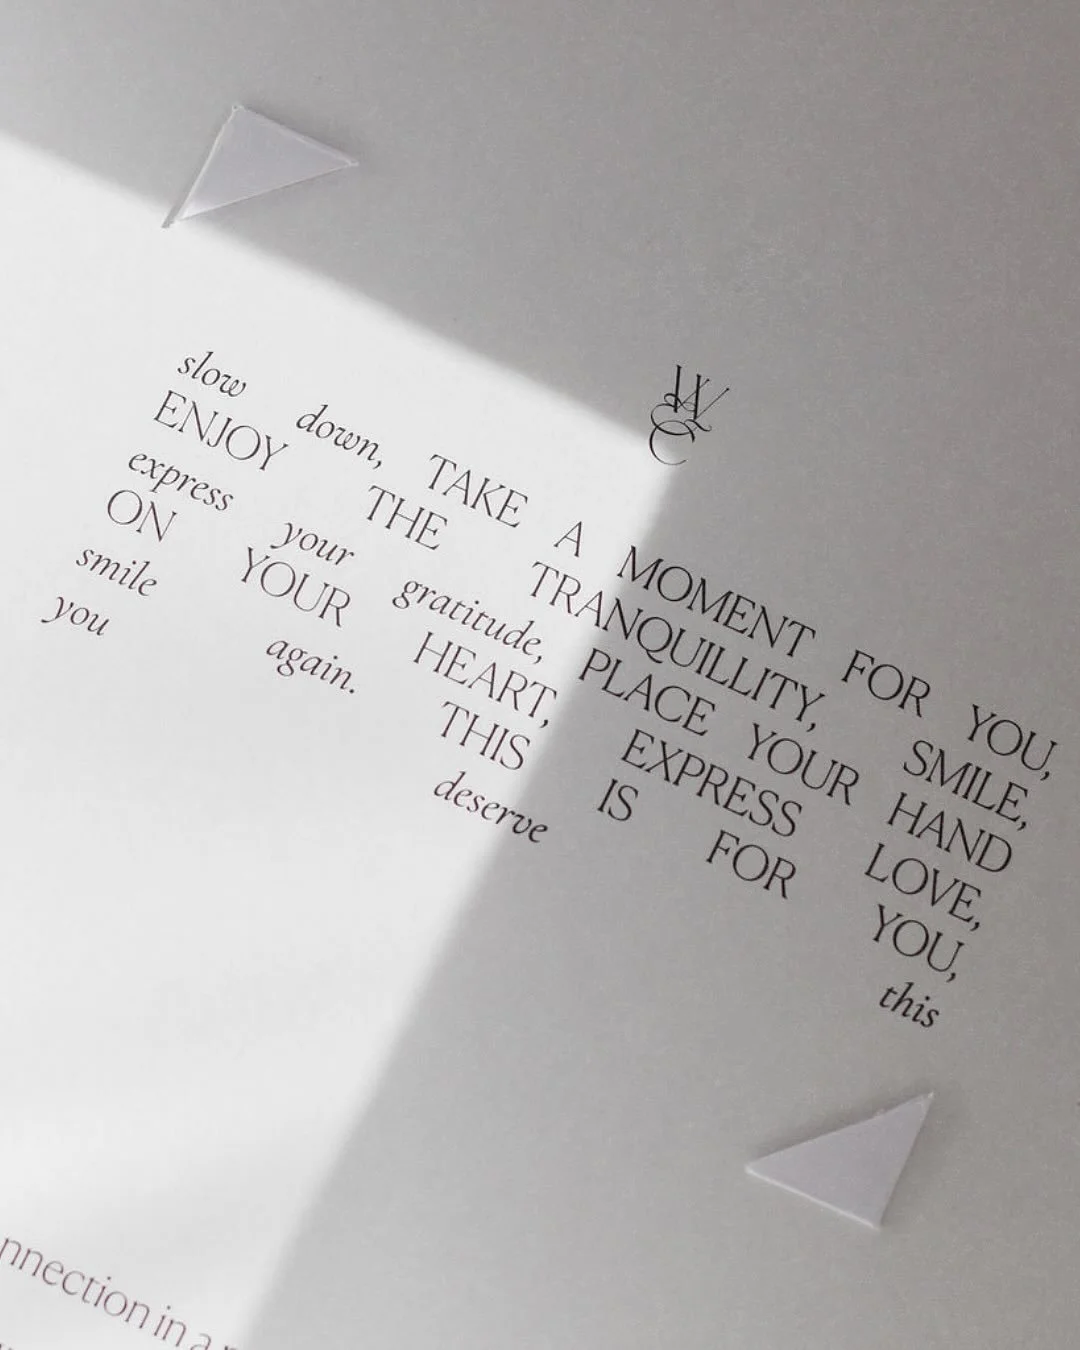 slow down, TAKE A MOMENT FOR YOU,
ENJOY THE TRANQUILLITY, SMILE,
express your gratitude, PLACE YOUR HAND
ON YOUR HEART, EXPRESS LOVE,
smile again. THIS IS FOR YOU,
you deserve this
nnection in a